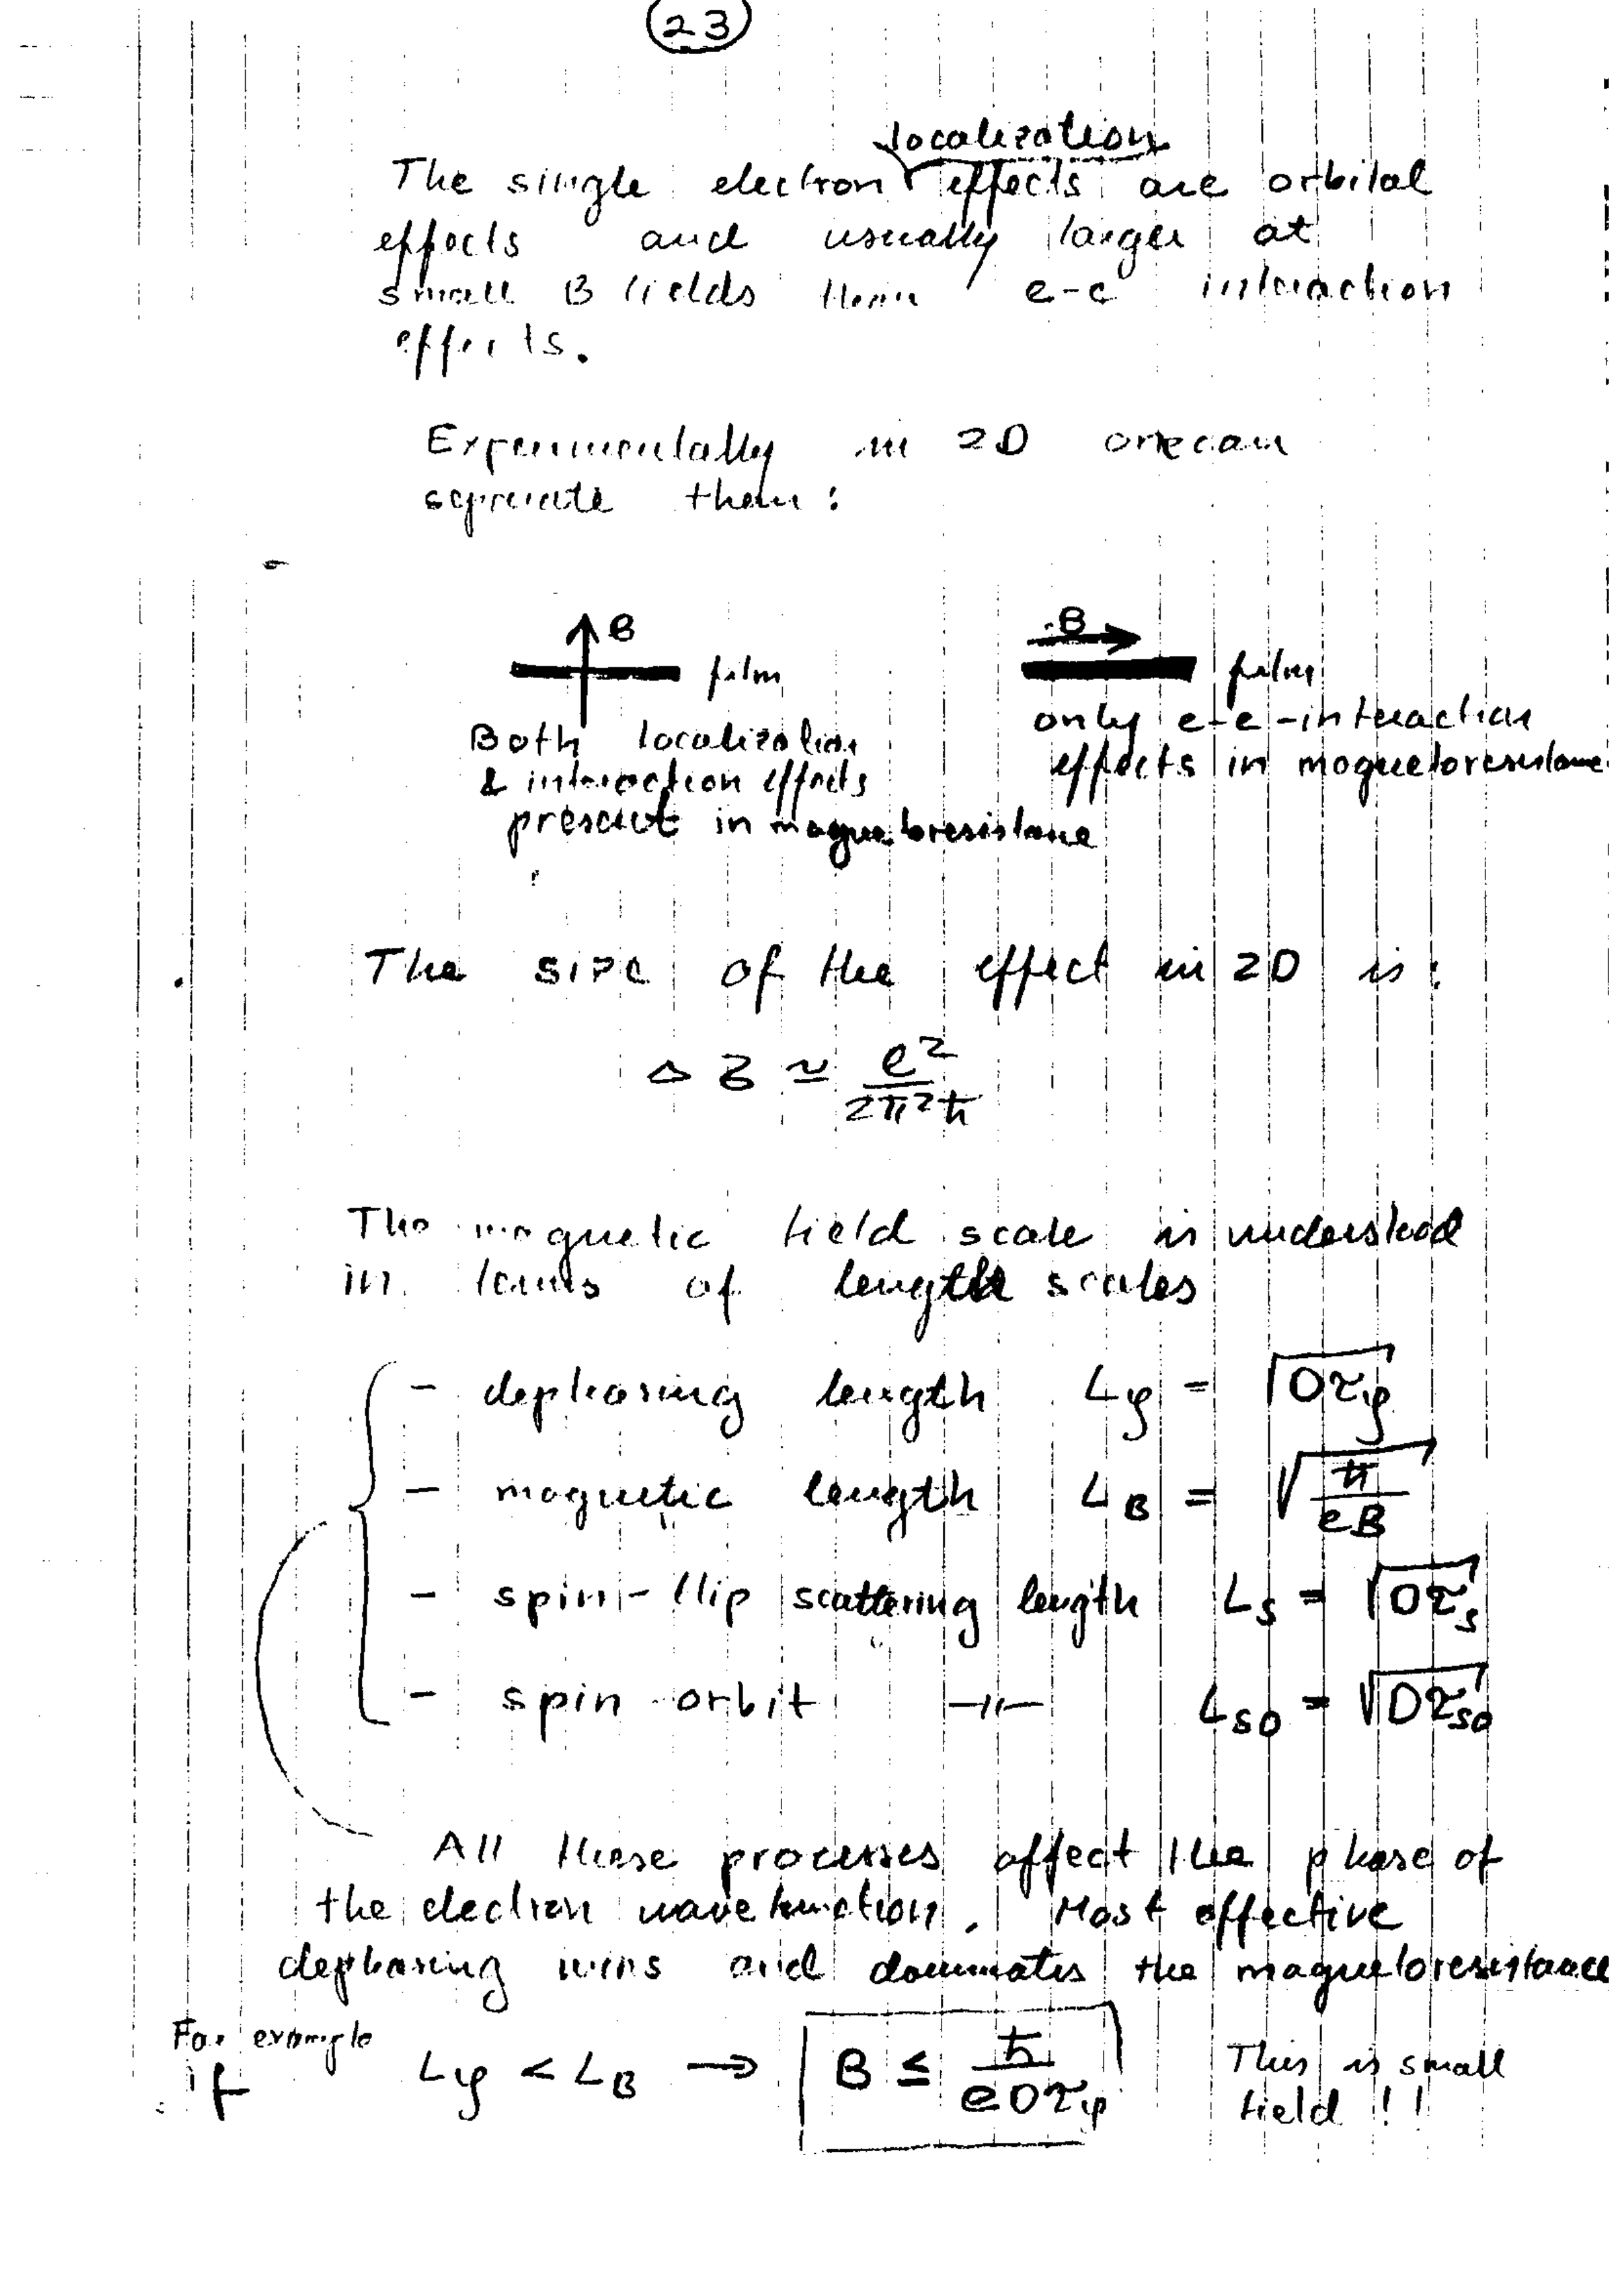 23
localization
The single electron effects are orbital
effects and usually larger at
small B fields than e-e interaction
effects.
Experimentally in 2D one can
separate them:
B
film
Both localization
& interaction effects
present in magnetoresistance
B
film
only e-e-interaction
effects in magnetoresistance
The size of the effect in 2D is:
Δ σ ≃ e² / 2π²ħ
The magnetic field scale is understood
in terms of length scales
- dephasing length Lφ = √Dτφ
- magnetic length L_B = √ħ/eB
- spin-flip scattering length Ls = √Dτs
- spin-orbit —〃— Lso = √Dτso
All these processes affect the phase of
the electron wavefunction. Most effective
dephasing wins and dominates the magnetoresistance
For example
if Lφ < L_B → B ≤ ħ / eDτφ
This is small
field !!